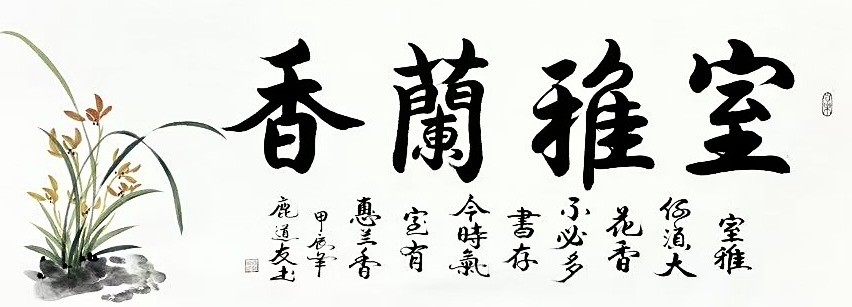 室雅蘭香
室雅
何須大
花香
不必多
書存
今時氣
室有
惠兰香
甲辰年
鹿道友